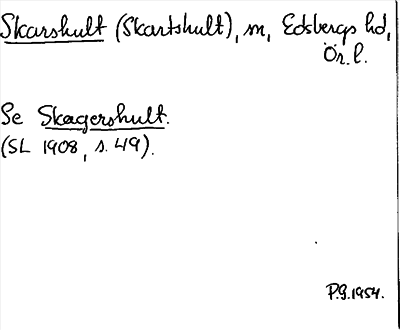 Skarshult (Skartshult), m, Edsbergs hd,
Ör. l.
Se Skagershult.
(SL 1908, s. 49).
P.G. 1954.